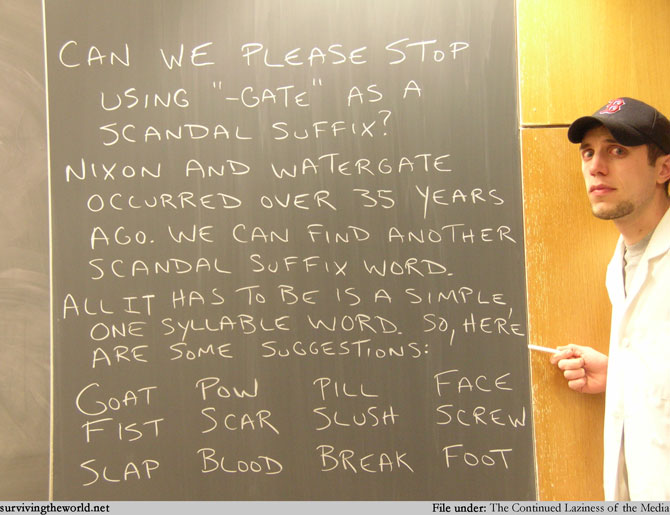 CAN WE PLEASE STOP
USING "-GATE" AS A
SCANDAL SUFFIX?
NIXON AND WATERGATE
OCCURRED OVER 35 YEARS
AGO. WE CAN FIND ANOTHER
SCANDAL SUFFIX WORD.
ALL IT HAS TO BE IS A SIMPLE,
ONE SYLLABLE WORD. SO, HERE
ARE SOME SUGGESTIONS:
GOAT POW PILL FACE
FIST SCAR SLUSH SCREW
SLAP BLOOD BREAK FOOT
survivingtheworld.net File under: The Continued Laziness of the Media